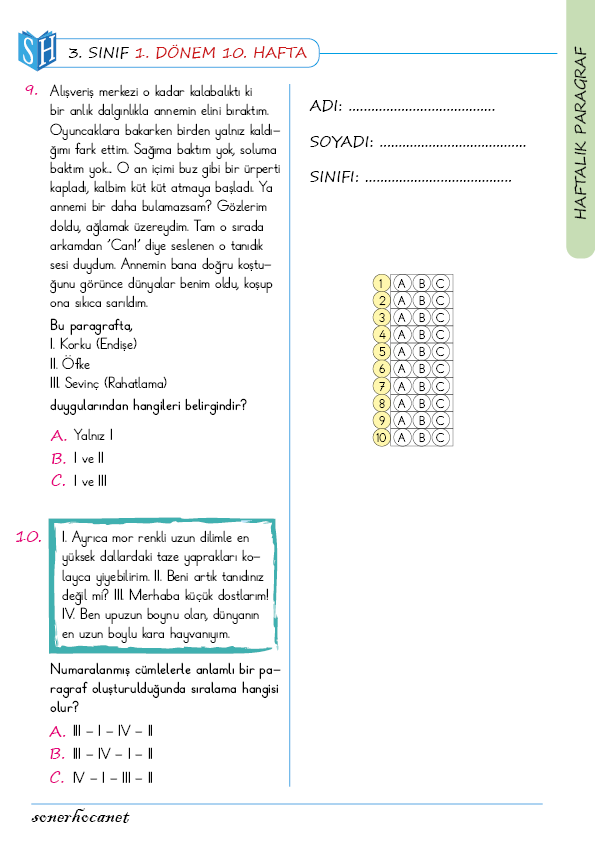 SH
3. SINIF 1. DÖNEM 10. HAFTA
HAFTALIK PARAGRAF
9. Alışveriş merkezi o kadar kalabalıktı ki
bir anlık dalgınlıkla annemin elini bıraktım.
Oyuncaklara bakarken birden yalnız kaldı-
ğımı fark ettim. Sağıma baktım yok, soluma
baktım yok... O an içimi buz gibi bir ürperti
kapladı, kalbim küt küt atmaya başladı. Ya
annemi bir daha bulamazsam? Gözlerim
doldu, ağlamak üzereydim. Tam o sırada
arkamdan 'Can!' diye seslenen o tanıdık
sesi duydum. Annemin bana doğru koştu-
ğunu görünce dünyalar benim oldu, koşup
ona sıkıca sarıldım.
Bu paragrafta,
I. Korku (Endişe)
II. Öfke
III. Sevinç (Rahatlama)
duygularından hangileri belirgindir?
A. Yalnız I
B. I ve II
C. I ve III
10. I. Ayrıca mor renkli uzun dilimle en
yüksek dallardaki taze yaprakları ko-
layca yiyebilirim. II. Beni artık tanıdınız
değil mi? III. Merhaba küçük dostlarım!
IV. Ben upuzun boynu olan, dünyanın
en uzun boylu kara hayvanıyım.
Numaralanmış cümlelerle anlamlı bir pa-
ragraf oluşturulduğunda sıralama hangisi
olur?
A. III - I - IV - II
B. III - IV - I - II
C. IV - I - III - II
ADI: .......................................
SOYADI: .......................................
SINIFI: .......................................
1 A B C
2 A B C
3 A B C
4 A B C
5 A B C
6 A B C
7 A B C
8 A B C
9 A B C
10 A B C
sonerhocanet